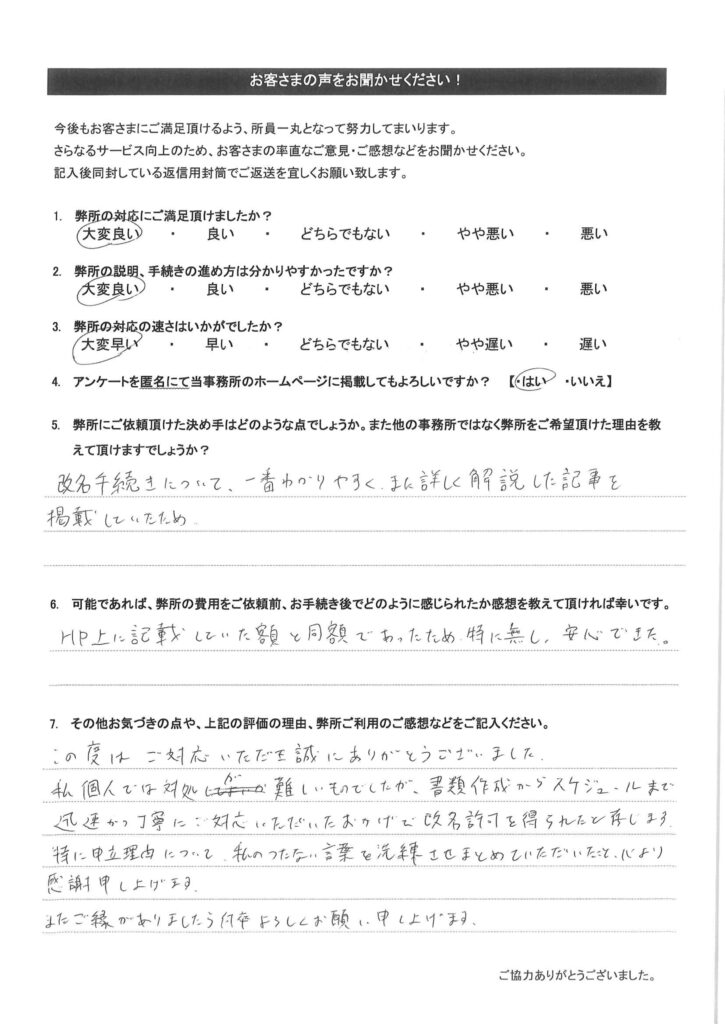 お客さまの声をお聞かせください！
今後もお客さまにご満足頂けるよう、所員一丸となって努力してまいります。
さらなるサービス向上のため、お客さまの率直なご意見・ご感想などをお聞かせください。
記入後同封している返信用封筒でご返送を宜しくお願い致します。
1. 弊所の対応にご満足頂けましたか？
大変良い ・ 良い ・ どちらでもない ・ やや悪い ・ 悪い
2. 弊所の説明、手続きの進め方は分かりやすかったですか？
大変良い ・ 良い ・ どちらでもない ・ やや悪い ・ 悪い
3. 弊所の対応の速さはいかがでしたか？
大変早い ・ 早い ・ どちらでもない ・ やや遅い ・ 遅い
4. アンケートを匿名にて当事務所のホームページに掲載してもよろしいですか？ 【・はい ・いいえ】
5. 弊所にご依頼頂けた決め手はどのような点でしょうか。また他の事務所ではなく弊所をご希望頂けた理由を教
えて頂けますでしょうか？
改名手続きについて、一番わかりやすく、また詳しく解説した記事を
掲載していたため。
6. 可能であれば、弊所の費用をご依頼前、お手続き後でどのように感じられたか感想を教えて頂ければ幸いです。
HP上に記載していた額と同額であったため、特に無し。安心できた。
7. その他お気づきの点や、上記の評価の理由、弊所ご利用のご感想などをご記入ください。
この度はご対応いただき誠にありがとうございました。
私個人では対処が難しいものでしたが、書類作成からスケジュールまで
迅速かつ丁寧にご対応いただいたおかげで改名許可を得られたと存じます。
特に申立理由について、私のつたない言葉を洗練させまとめていただいたこと、心より
感謝申し上げます。
またご縁がありましたら何卒よろしくお願い申し上げます。
ご協力ありがとうございました。